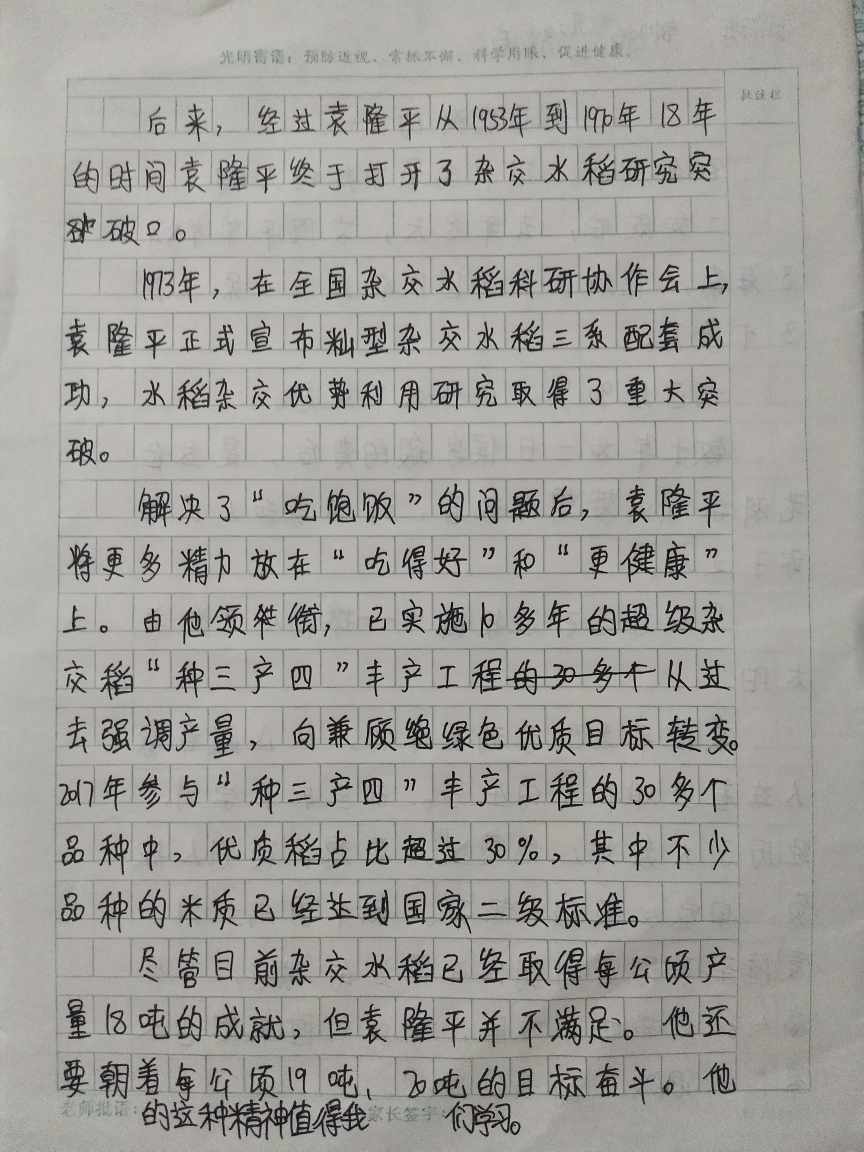 光明寄语：预防近视、常抓不懈、科学用眼、促进健康。
批注栏
后来，经过袁隆平从1953年到1970年18年
的时间袁隆平终于打开了杂交水稻研究突
破口。
1973年，在全国杂交水稻科研协作会上，
袁隆平正式宣布籼型杂交水稻三系配套成
功，水稻杂交优势利用研究取得了重大突
破。
解决了“吃饱饭”的问题后，袁隆平
将更多精力放在“吃得好”和“更健康”
上。由他领衔，已实施10多年的超级杂
交稻“种三产四”丰产工程的30多个从过
去强调产量，向兼顾绝绿色优质目标转变。
2017年参与“种三产四”丰产工程的30多个
品种中，优质稻占比超过30%，其中不少
品种的米质已经达到国家二级标准。
尽管目前杂交水稻已经取得每公顷产
量18吨的成就，但袁隆平并不满足。他还
要朝着每公顷19吨、20吨的目标奋斗。他
老师批语：
家长签字：
的这种精神值得我们学习。